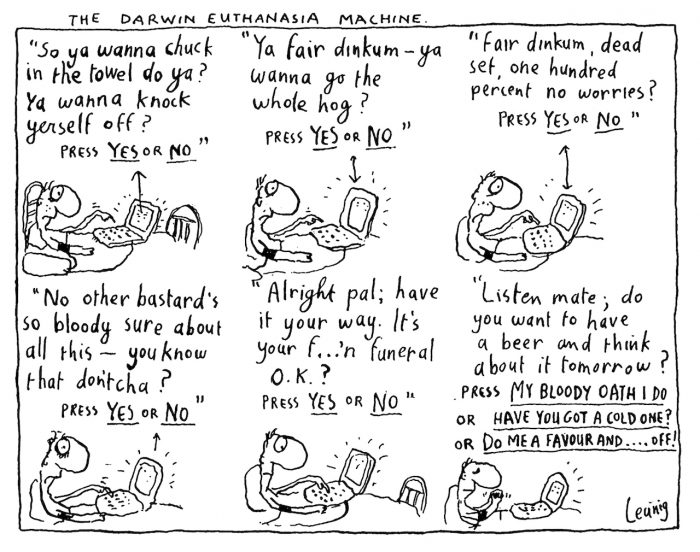 THE DARWIN EUTHANASIA MACHINE.
"So ya wanna chuck
in the towel do ya?
Ya wanna knock
yerself off?
PRESS YES OR NO"
"Ya fair dinkum – ya
wanna go the
whole hog?
PRESS YES OR NO"
"Fair dinkum, dead
set, one hundred
percent no worries?
PRESS YES OR NO"
"No other bastard's
so bloody sure about
all this – you know
that dontcha?
PRESS YES OR NO"
"Alright pal; have
it your way. It's
your f...'n funeral
O.K.?
PRESS YES OR NO"
"Listen mate; do
you want to have
a beer and think
about it tomorrow?
PRESS MY BLOODY OATH I DO
OR HAVE YOU GOT A COLD ONE?
OR DO ME A FAVOUR AND....OFF!
"
Leunig